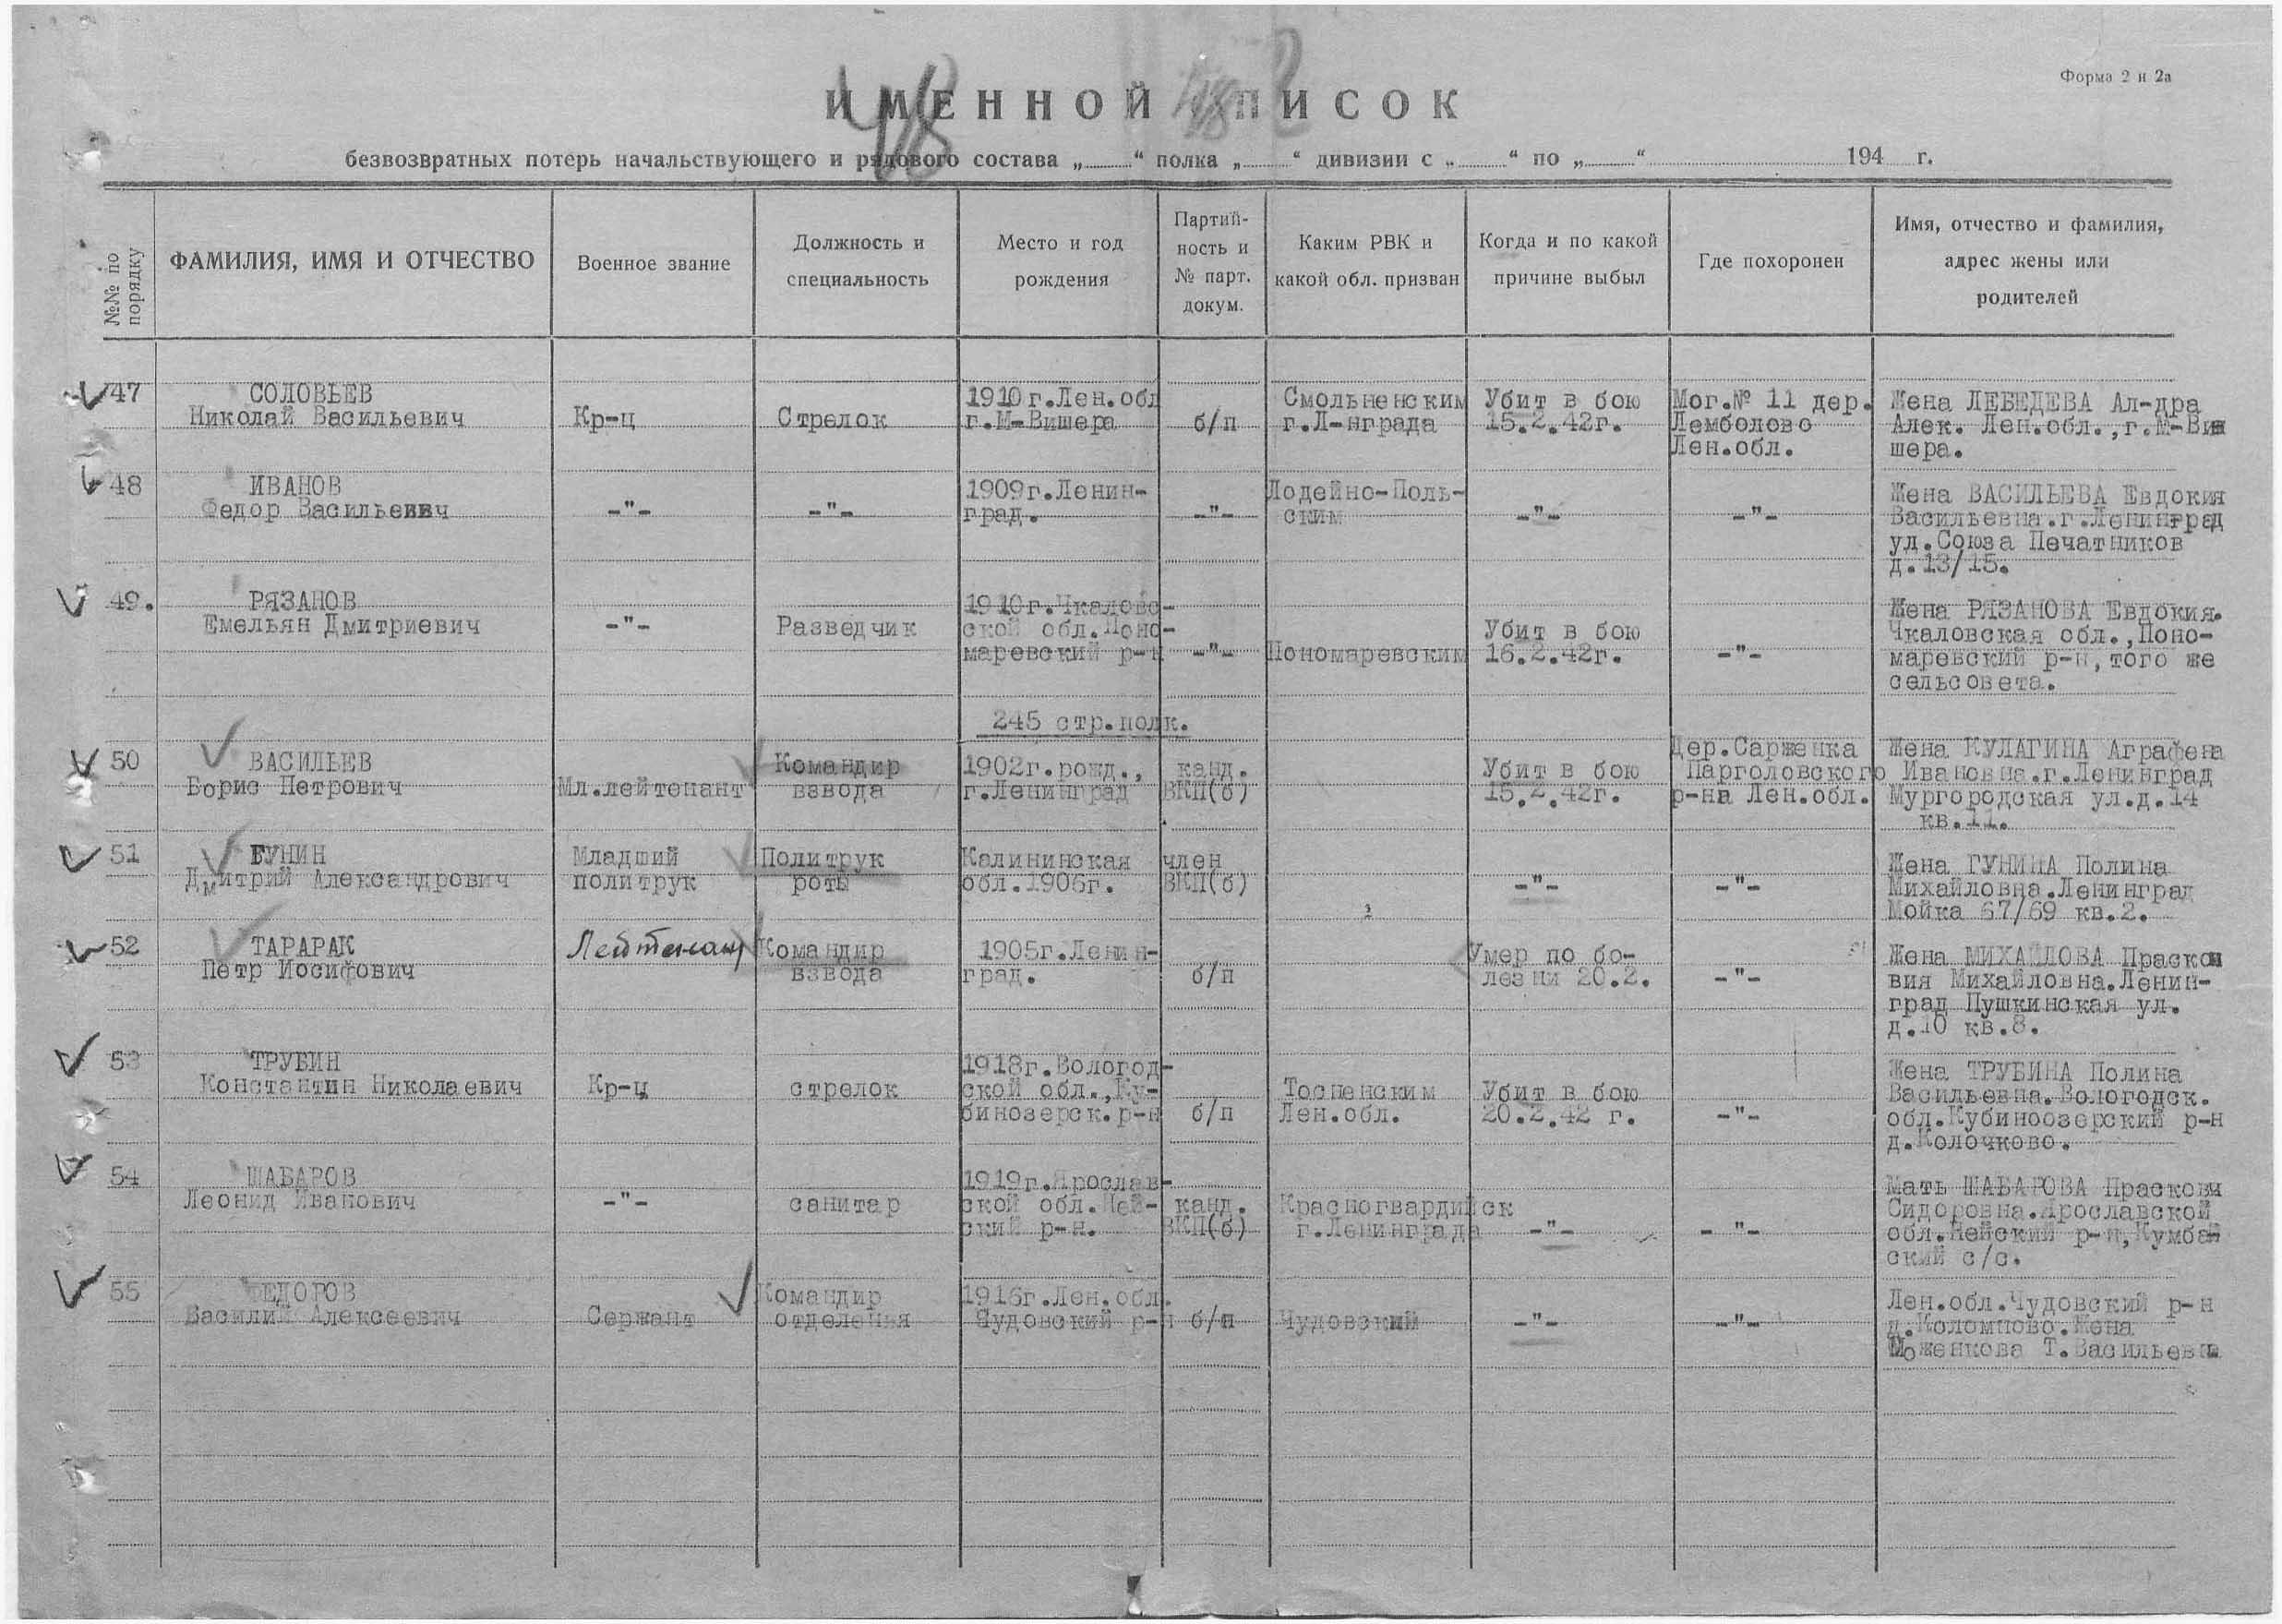 Форма 2 и 2а
ИМЕННОЙ СПИСОК
безвозвратных потерь начальствующего и рядового состава „ “ полка „ “ дивизии с „ “ по „ “ 194 г.
№№ по порядку
ФАМИЛИЯ, ИМЯ И ОТЧЕСТВО
Военное звание
Должность и
специальность
Место и год
рождения
Партий-
ность и
№ парт.
докум.
Каким РВК и
какой обл. призван
Когда и по какой
причине выбыл
Где похоронен
Имя, отчество и фамилия,
адрес жены или
родителей
47
СОЛОВЬЕВ
Николай Васильевич
Кр-ц
Стрелок
1910г.Лен.обл
г.М-Вишера
б/п
Смольненским
г.Л-нграда
Убит в бою
15.2.42г.
Мог.№ 11 дер.
Лемболово
Лен.обл.
Жена ЛЕБЕДЕВА Ал-дра
Алек. Лен.обл.,г.М-Ви
шера.
48
ИВАНОВ
Федор Васильевич
-"-
-"-
1909г.Ленин-
град.
-"-
Лодейно-Поль-
ским
-"-
-"-
Жена ВАСИЛЬЕВА Евдокия
Васильевна.г.Ленинград
ул.Союза Печатников
д.13/15.
49.
РЯЗАНОВ
Емельян Дмитриевич
-"-
Разведчик
1910г.Чкаловс-
ской обл.Поно-
маревский р-н
-"-
Пономаревским
Убит в бою
16.2.42г.
-"-
Жена РЯЗАНОВА Евдокия.
Чкаловская обл.,Поно-
маревский р-н,того же
сельсовета.
245 стр.полк.
50
ВАСИЛЬЕВ
Борис Петрович
Мл.лейтенант
Командир
взвода
1902г.рожд.,
г.Ленинград
канд.
ВКП(б)
Убит в бою
15.2.42г.
Дер.Сарженка
Парголовского
р-на Лен.обл.
Жена КУЛАГИНА Аграфена
Ивановна.г.Ленинград
Мургородская ул.д.14
кв.11.
51
ГУНИН
Дмитрий Александрович
Младший
политрук
Политрук
роты
Калининская
обл.1906г.
член
ВКП(б)
-"-
-"-
Жена ГУНИНА Полина
Михайловна.Ленинград
Мойка 67/69 кв.2.
52
ТАРАРАК
Петр Иосифович
Лейтенант
Командир
взвода
1905г.Ленин-
град.
б/п
Умер по бо-
лезни 20.2.
-"-
Жена МИХАЙЛОВА Праско
вия Михайловна.Ленин-
град Пушкинская ул.
д.10 кв.8.
53
ТРУБИН
Константин Николаевич
Кр-ц
стрелок
1918г.Вологод-
ской обл.,Ку-
бинозерск.р-н
б/п
Тосненским
Лен.обл.
Убит в бою
20.2.42 г.
-"-
Жена ТРУБИНА Полина
Васильевна.Вологодск.
обл.Кубиноозерский р-н
д.Колочково.
54
ШАБАРОВ
Леонид Иванович
-"-
санитар
1919г.Ярослав-
ской обл.Ней-
ский р-н.
канд.
ВКП(б)
Красногвардийск
г.Ленинграда
-"-
-"-
Мать ШАБАРОВА Прасковя
Сидоровна.Ярославской
обл.Нейский р-н,Кумбай
ский с/с.
55
ФЕДОРОВ
Василий Алексеевич
Сержант
Командир
отделенья
1916г.Лен.обл.
Чудовский р-н
б/п
Чудовский
-"-
-"-
Лен.обл.Чудовский р-н
д.Коломпово.Жена
Моженкова Т.Васильевн